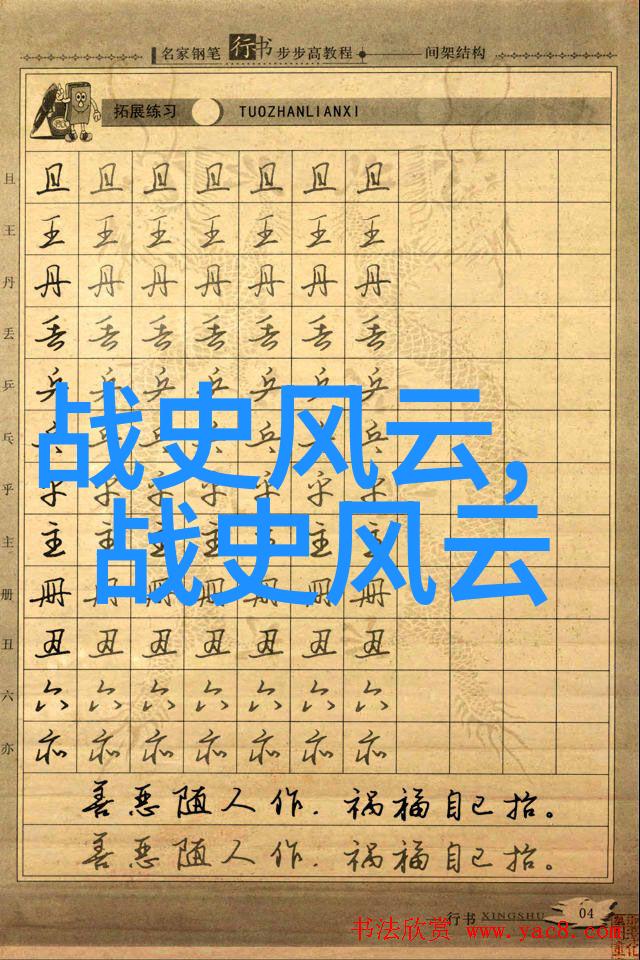 名家钢笔行书步步高教程 间架结构
拓展练习 TUOZHANLIANXI
且 且 且 且 且 且 且 且
王 王 王 王 王 王 王 王
丹 丹 丹 丹 丹 丹 丹 丹
丢 丢 丢 丢 丢 丢 丢 丢
乒 乒 乒 乒 乒 乒 乒 乒
乓 兵 兵 兵
战史风云，
乎 乎 乎 乎 乎 乎 乎 乎
主 主 主 主 主 主 主 主
战史风云
册 册 册 册 册 册 册 册
丑 丑 丑 丑 丑 丑 丑 丑
六 六 六 六 六 六 六 六
亦 亦 亦 亦 亦 亦 亦 亦
善恶随人作，祸福自己招。
善恶随人作，祸福自己招。
行书 XINGSHU 04
书法欣赏 www.yac8.com